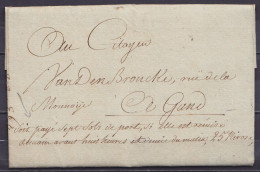 Au Citoyen
Van Den Broucke, rue de la
Monnoye
A Gand
Soit payé Sept Sols de port, si elle est remise
avant huit heures et demie du matin, 25